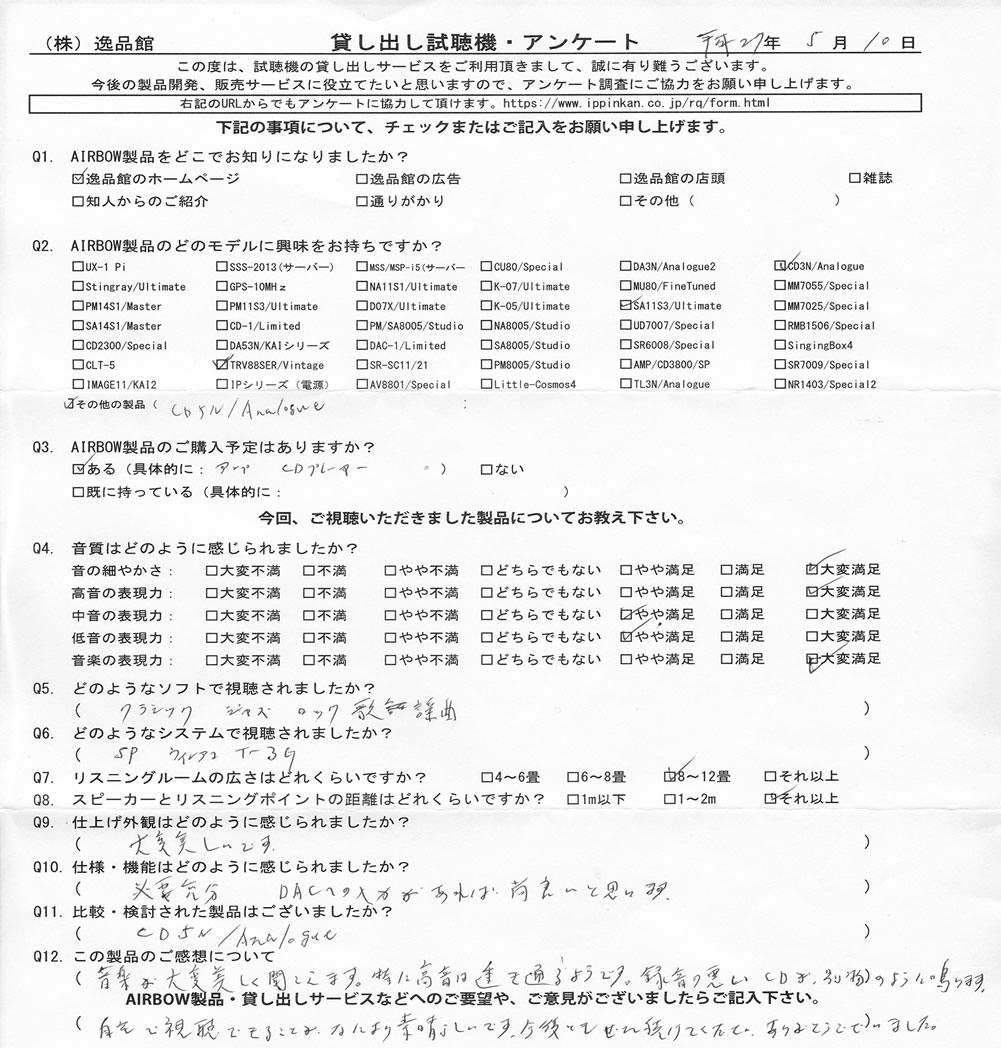 (株) 逸品館 貸し出し試聴機・アンケート 平成27年 5月 10日
この度は、試聴機の貸し出しサービスをご利用頂きまして、誠に有り難うございます。
今後の製品開発、販売サービスに役立てたいと思いますので、アンケート調査にご協力をお願い申し上げます。
右記のURLからでもアンケートに協力して頂けます。https://www.ippinkan.co.jp/rq/form.html
下記の事項について、チェックまたはご記入をお願い申し上げます。
Q1. AIRBOW製品をどこでお知りになりましたか？
☑逸品館のホームページ □逸品館の広告 □逸品館の店頭 □雑誌
□知人からのご紹介 □通りがかり □その他 ( )
Q2. AIRBOW製品のどのモデルに興味をお持ちですか？
□UX-1 Pi □SSS-2013(サーバー) □MSS/MSP-i5(サーバー □CU80/Special □DA3N/Analogue2 ☑CD3N/Analogue
□Stingray/Ultimate □GPS-10MHz □NA11S1/Ultimate □K-07/Ultimate □MU80/FineTuned □MM7055/Special
□PM14S1/Master □PM11S3/Ultimate □D07X/Ultimate □K-05/Ultimate ☑SA11S3/Ultimate □MM7025/Special
□SA14S1/Master □CD-1/Limited □PM/SA8005/Studio □NA8005/Studio □UD7007/Special □RMB1506/Special
□CD2300/Special □DA53N/KAIシリーズ □DAC-1/Limited □SA8005/Studio □SR6008/Special □SingingBox4
□CLT-5 ☑TRV88SER/Vintage □SR-SC11/21 □PM8005/Studio □AMP/CD3800/SP □SR7009/Special
□IMAGE11/KAI2 □IPシリーズ (電源) □AV8801/Special □Little-Cosmos4 □TL3N/Analogue □NR1403/Special2
☑その他の製品 ( CD5N/Analogue
Q3. AIRBOW製品のご購入予定はありますか？
☑ある (具体的に： アンプ CDプレーヤー ) □ない
□既に持っている (具体的に： )
今回、ご視聴いただきました製品についてお教え下さい。
Q4. 音質はどのように感じられましたか？
音の細やかさ： □大変不満 □不満 □やや不満 □どちらでもない □やや満足 □満足 ☑大変満足
高音の表現力： □大変不満 □不満 □やや不満 □どちらでもない □やや満足 □満足 ☑大変満足
中音の表現力： □大変不満 □不満 □やや不満 □どちらでもない ☑やや満足 □満足 □大変満足
低音の表現力： □大変不満 □不満 □やや不満 □どちらでもない ☑やや満足 □満足 □大変満足
音楽の表現力： □大変不満 □不満 □やや不満 □どちらでもない □やや満足 □満足 ☑大変満足
Q5. どのようなソフトで視聴されましたか？
( クラシック ジャズ ロック 歌謡曲 )
Q6. どのようなシステムで視聴されましたか？
( SP )
Q7. リスニングルームの広さはどれくらいですか？ □4～6畳 □6～8畳 ☑8～12畳 □それ以上
Q8. スピーカーとリスニングポイントの距離はどれくらいですか？ □1m以下 □1～2m ☑それ以上
Q9. 仕上げ外観はどのように感じられましたか？
( 大変美しいです。 )
Q10. 仕様・機能はどのように感じられましたか？
( 必要充分 DACへの入力があれば尚良いと思います。 )
Q11. 比較・検討された製品はございましたか？
( CD5N/Analogue )
Q12. この製品のご感想について
( 音楽が大変美しく聞こえます。特に高音は透き通るようです。録音の悪いCDが、別物のように鳴ります。
AIRBOW製品・貸し出しサービスなどへのご要望や、ご意見がございましたらご記入下さい。
( 自宅で視聴できることが、なにより素晴らしいです。今後ともぜひ続けてください。ありがとうございました。